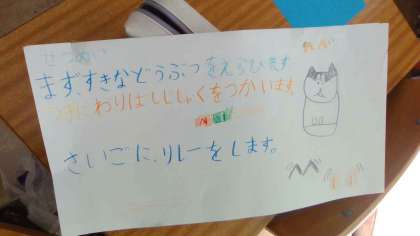 せつめい
まず、すきなどうぶつをえらびます
つぎにわりばしししゃくをつかいます
さいごに、リレーをします。